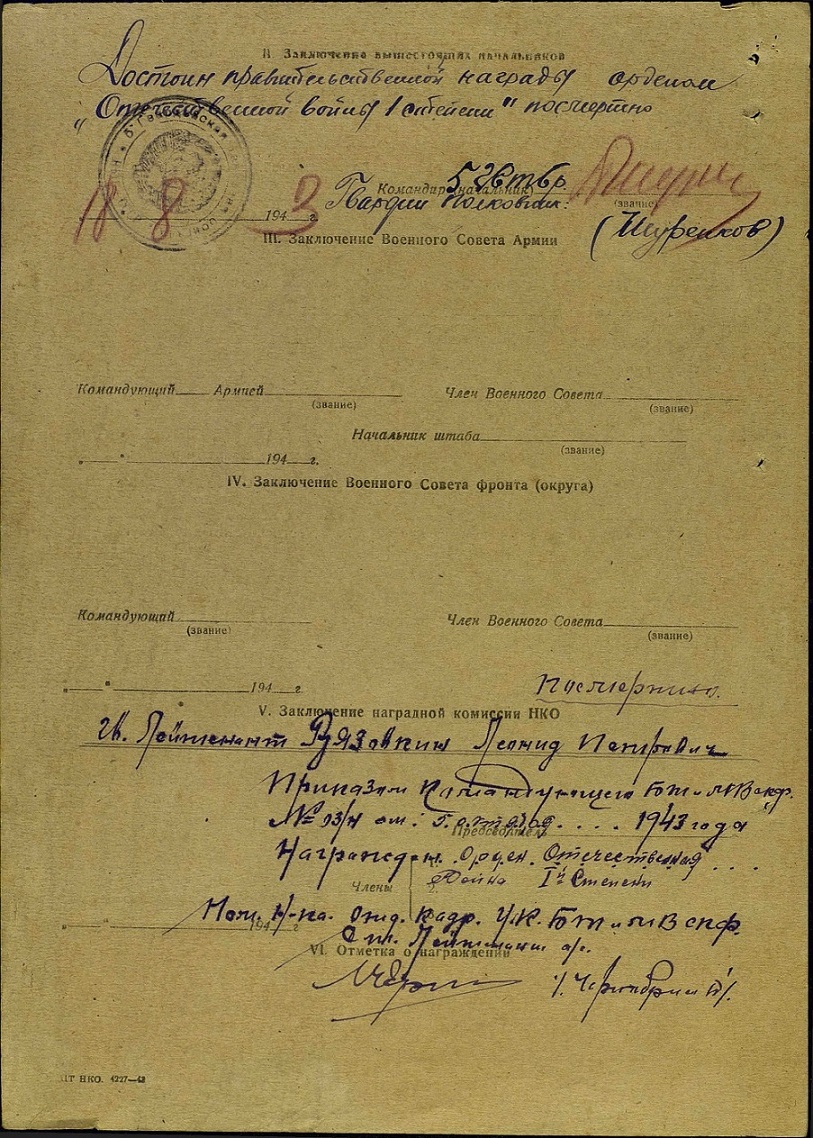 II. Заключение вышестоящих начальников
Достоин правительственной награды орденом
„Отечественной войны 1 степени" посмертно
Командир (начальник) 5 гв тбр.
(звание)
18 8 1943 г. Гвардии полковник:
(Шуренков)
III. Заключение Военного Совета Армии
Командующий Армией Член Военного Совета
(звание) (звание)
Начальник штаба
(звание)
„ " 194 г.
IV. Заключение Военного Совета фронта (округа)
Командующий Член Военного Совета
(звание) (звание)
„ " 194 г. Посмертно.
V. Заключение наградной комиссии НКО
гв. Лейтенант Рязовкин Леонид Петрович
Приказом Командующего БТ и МВ скф.
от: 5 октября 1943 года
Председатель
Награжден Орден. Отечественная
Война Iй Степени
Члены
Пом. Н-ка. Отд. Кадр. УК. БТ и МВ скф.
„ " 194 г.
Ст. Лейтенант а/с.
VI. Отметка о награждении
НКО. 4227—42